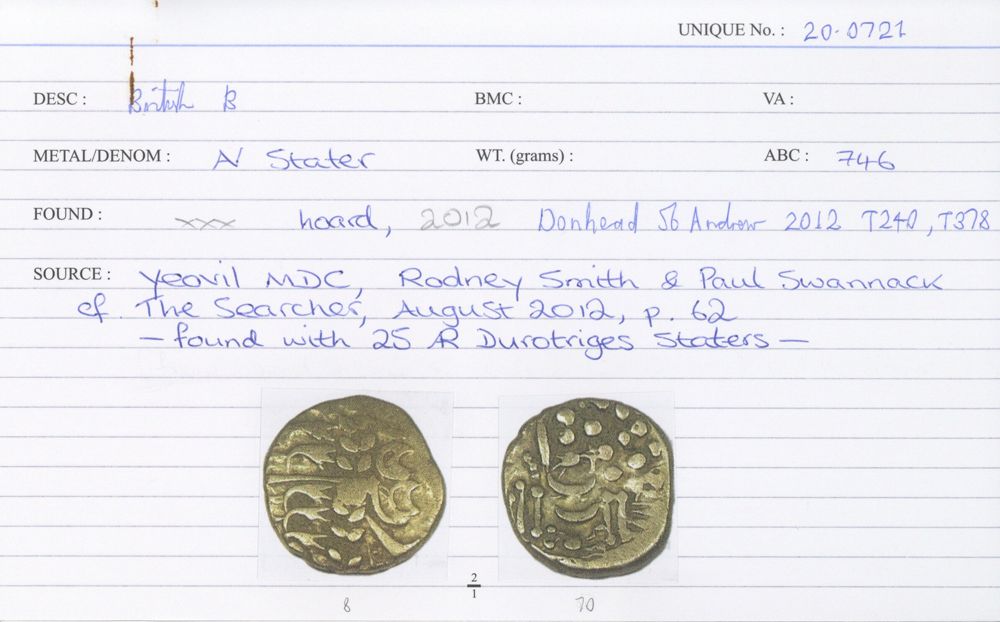 UNIQUE No. : 20.0721
DESC : British B BMC : VA :
METAL/DENOM : AV Stater WT. (grams) : ABC : 746
FOUND : xxx hoard, 2012 Donhead St Andrew 2012 T240, T378
SOURCE : Yeovil MDC, Rodney Smith & Paul Swannack
cf. The Searcher, August 2012, p. 62
– found with 25 AR Durotriges Staters –
2/1
8 70